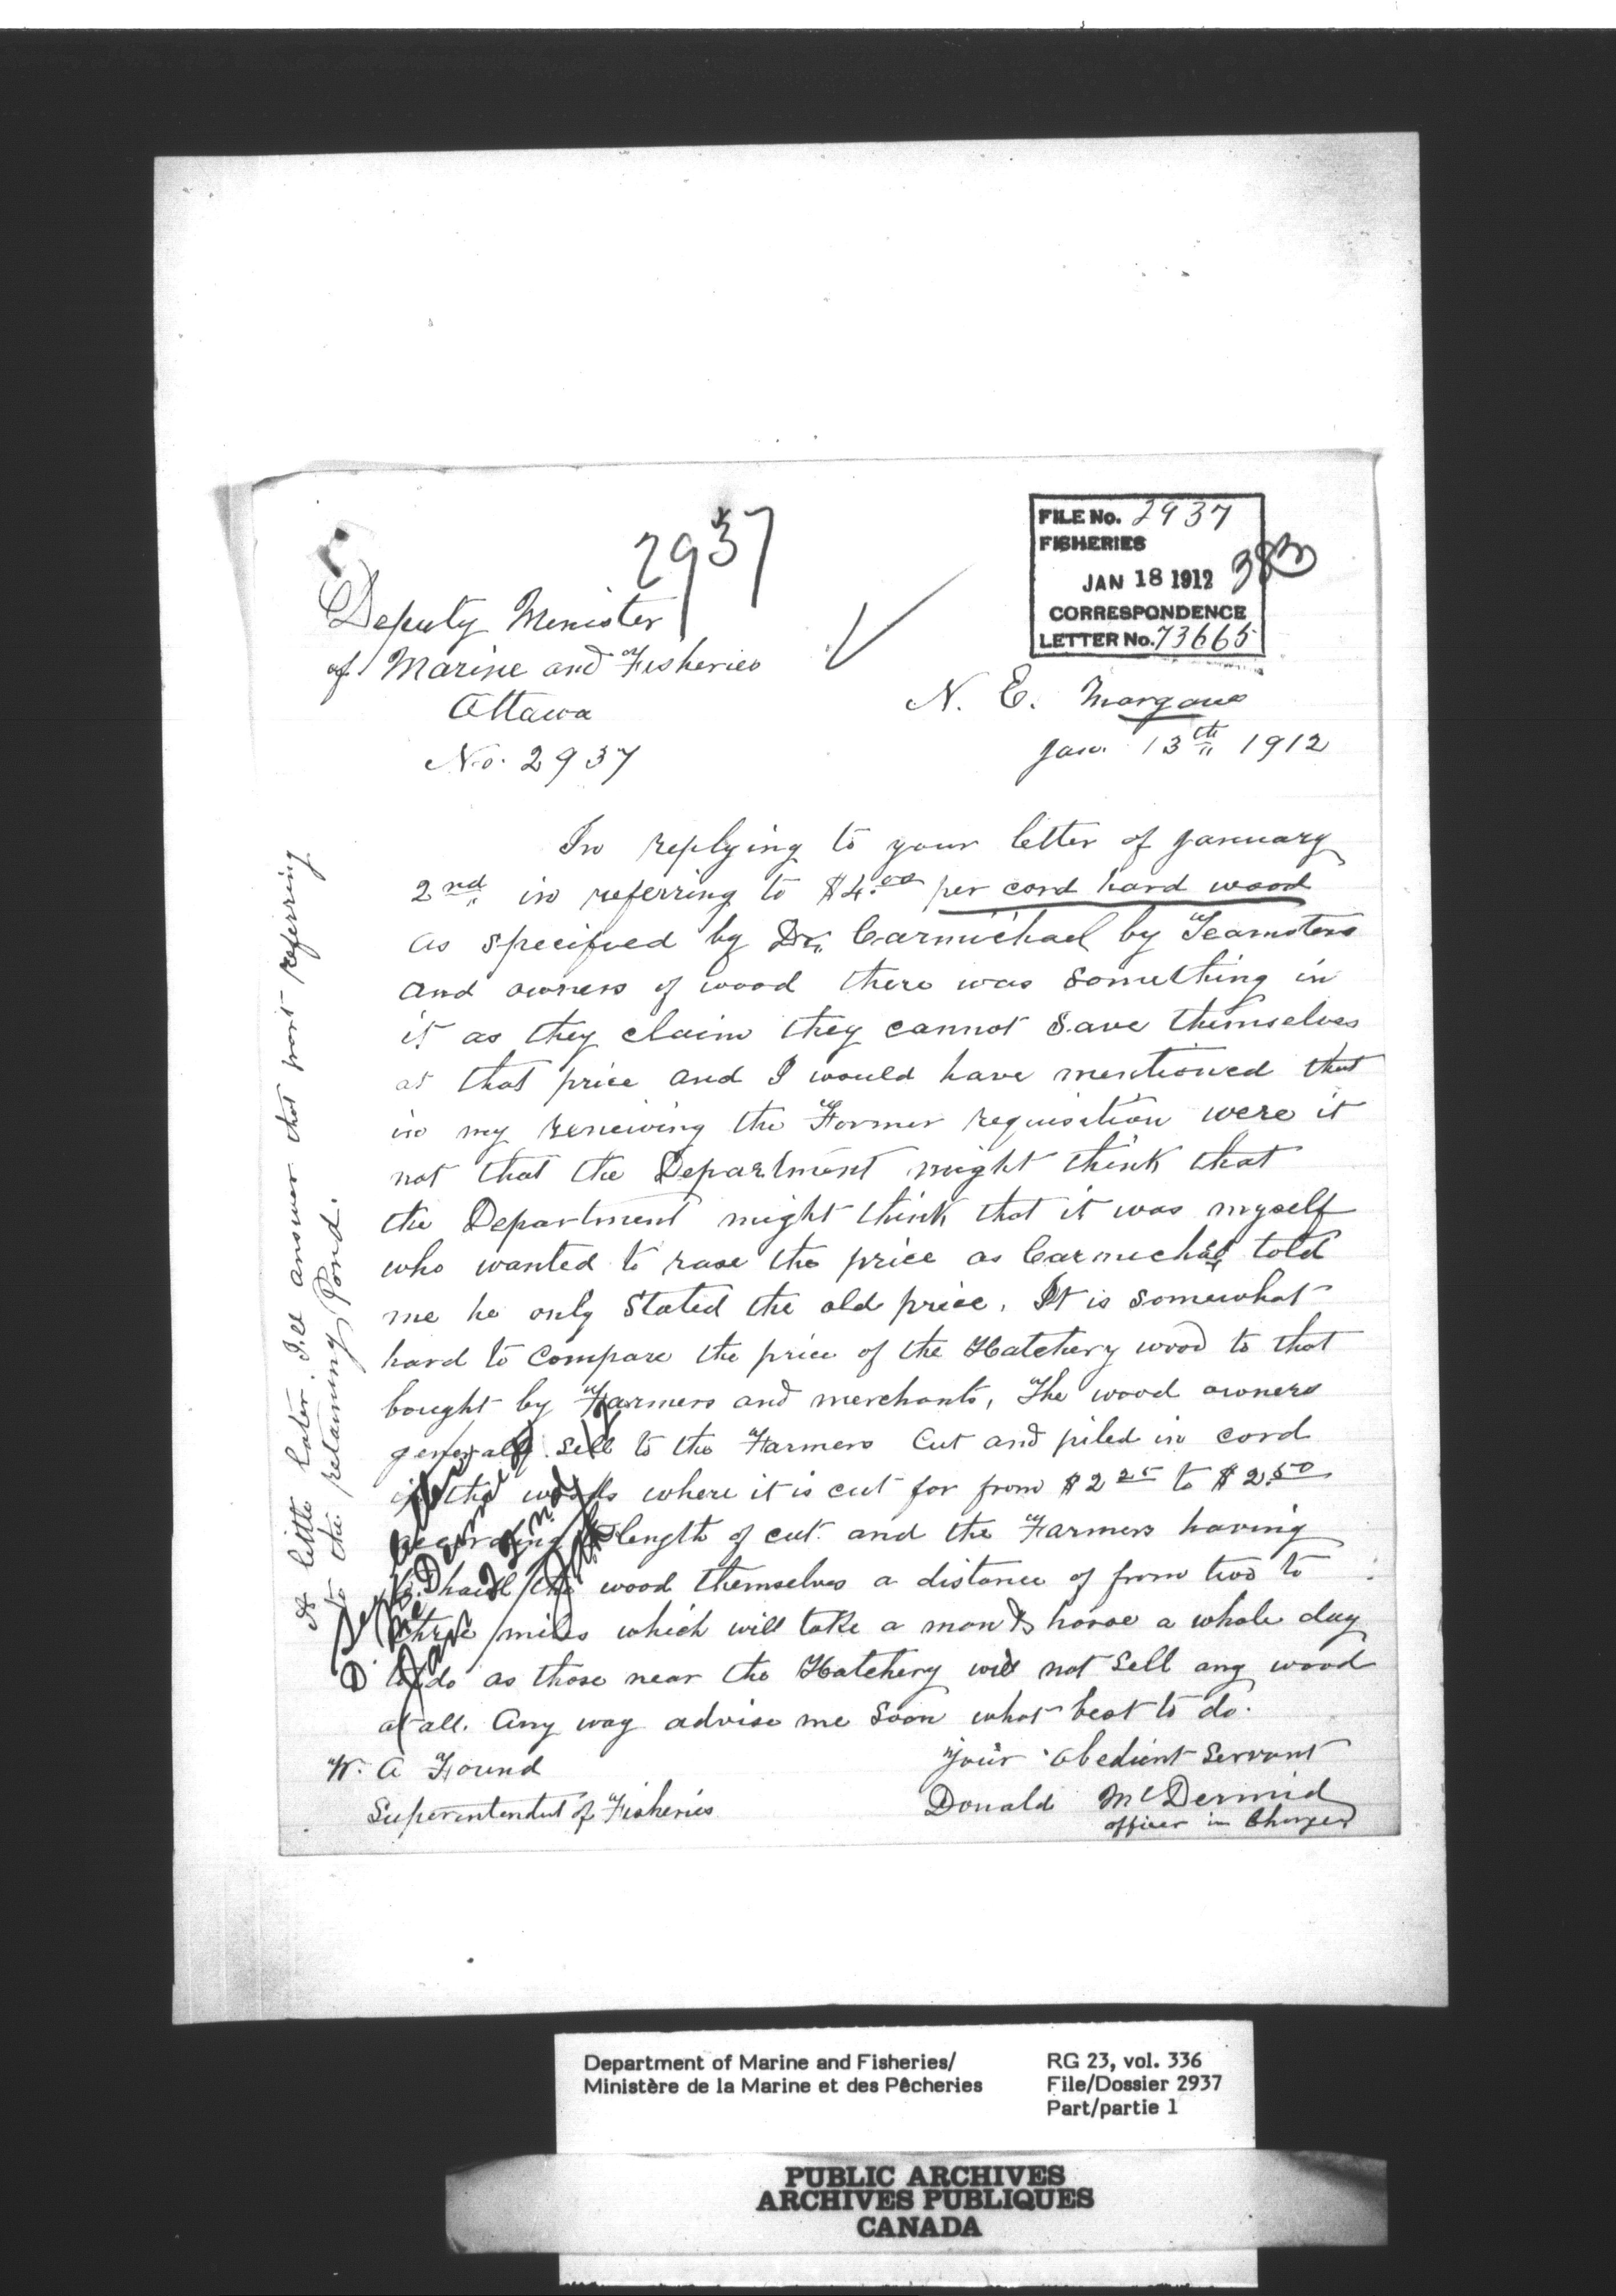 2937
FILE No. 2937
FISHERIES
JAN 18 1912
383
CORRESPONDENCE
LETTER No. 73665
Deputy Minister
of Marine and Fisheries
Ottawa
No. 2937
N. E. Margaree
Jan. 13th 1912
In replying to your letter of January
2nd in referring to $4.00 per cord hard wood
as specified by Dr. Carmichael by Teamsters
and owners of wood there was something in
it as they claim they cannot save themselves
at that price and I would have mentioned that
in my receiving the Former requisition were it
not that the Department might think that
the Department might think that it was myself
who wanted to rase the price as Carmichael told
me he only stated the old price. It is somewhat
hard to compare the price of the Hatchery wood to that
bought by Farmers and merchants, The wood owners
generally sell to the Farmers Cut and piled in cord
in the woods where it is cut for from $2 25 to $2.50
according to length of cut and the Farmers having
to haul the wood themselves a distance of from two to
three miles which will take a man & horse a whole day
to do as those near the Hatchery will not sell any wood
at all. Any way advise me soon what best to do.
Your Obedient Servant
Donald McDermid
officer in Charge
W. A Found
Superintendent of Fisheries
A little later I'll answer that part referring
to the retaining Pond.
D. McDermid
Jan 22nd
Department of Marine and Fisheries/
Ministère de la Marine et des Pêcheries
RG 23, vol. 336
File/Dossier 2937
Part/partie 1
PUBLIC ARCHIVES
ARCHIVES PUBLIQUES
CANADA